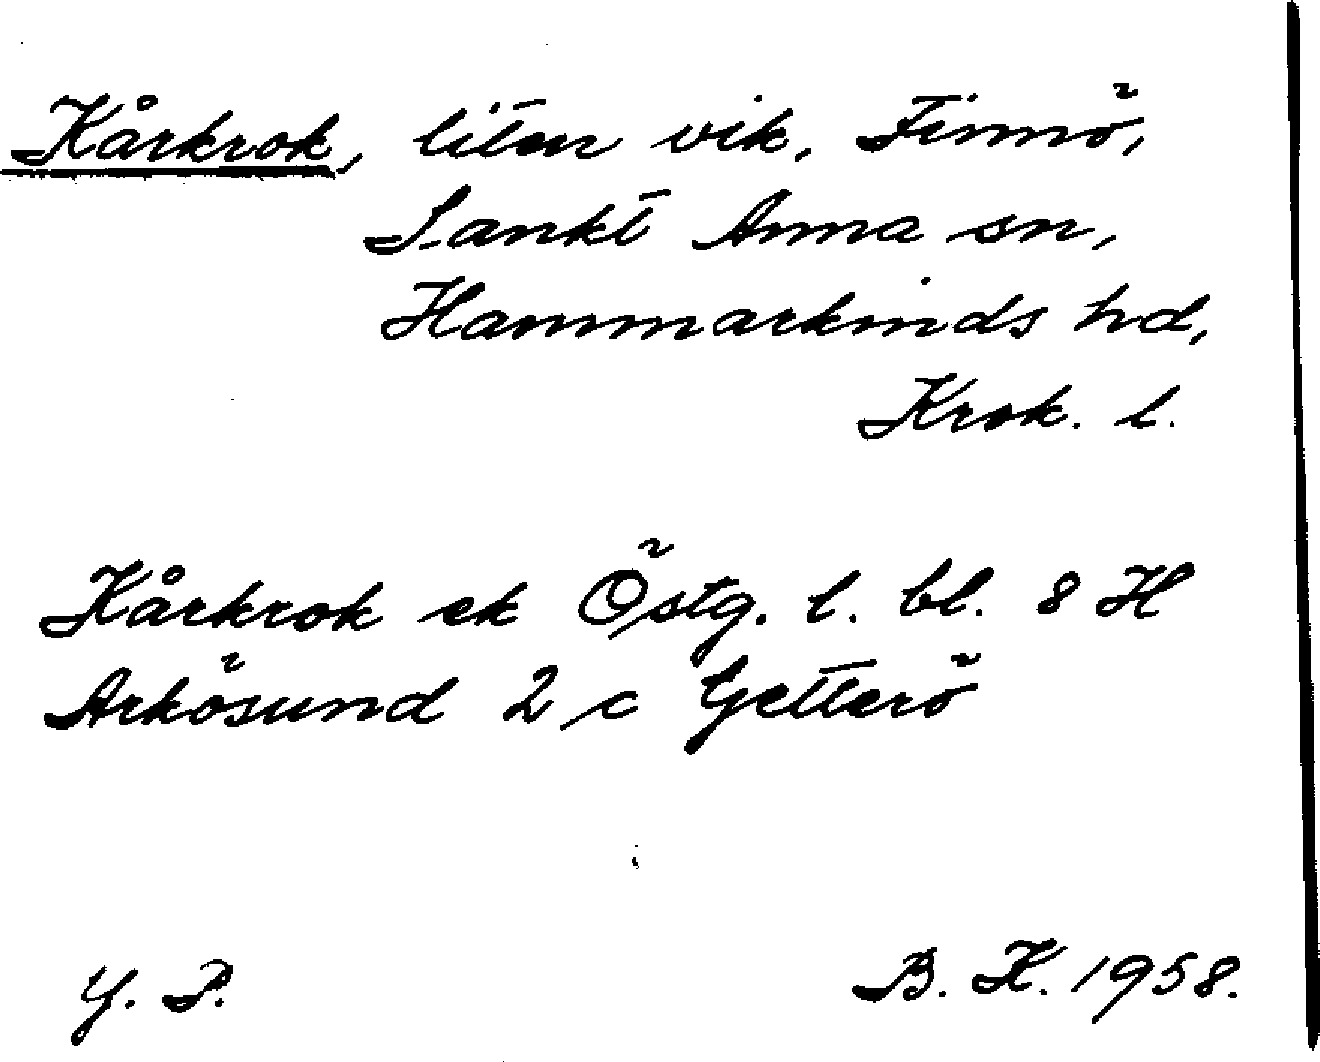 Kårkrok, liten vik, Finnö,
Sankt Anna sn,
Hammarkinds hd,
Krok. l.
Kårkrok ek Östg. l. bl. 8 H
Arkösund 2 c Getterö
Y. P. B. K. 1958.